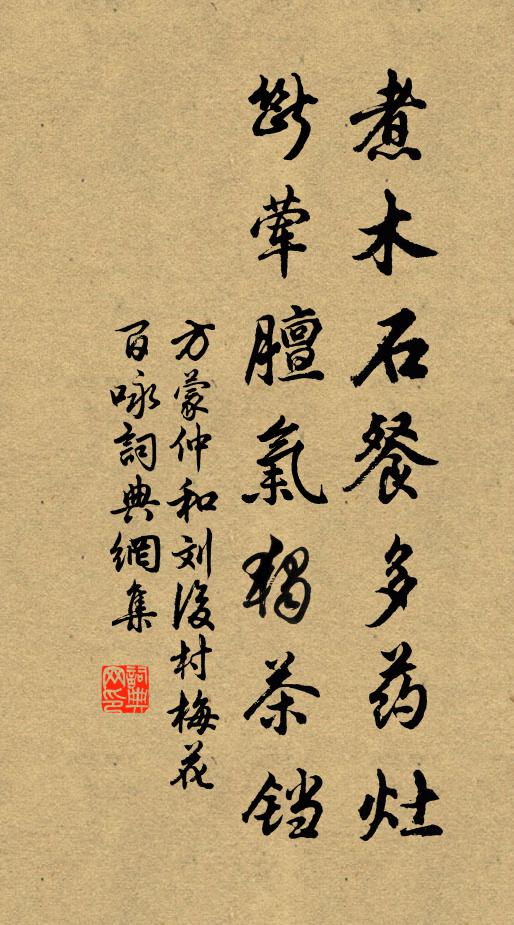 煮木石餐多药灶
断荤膻氣独茶铛
方蒙仲和刘後村梅花
百咏詞典網集
詞典网印